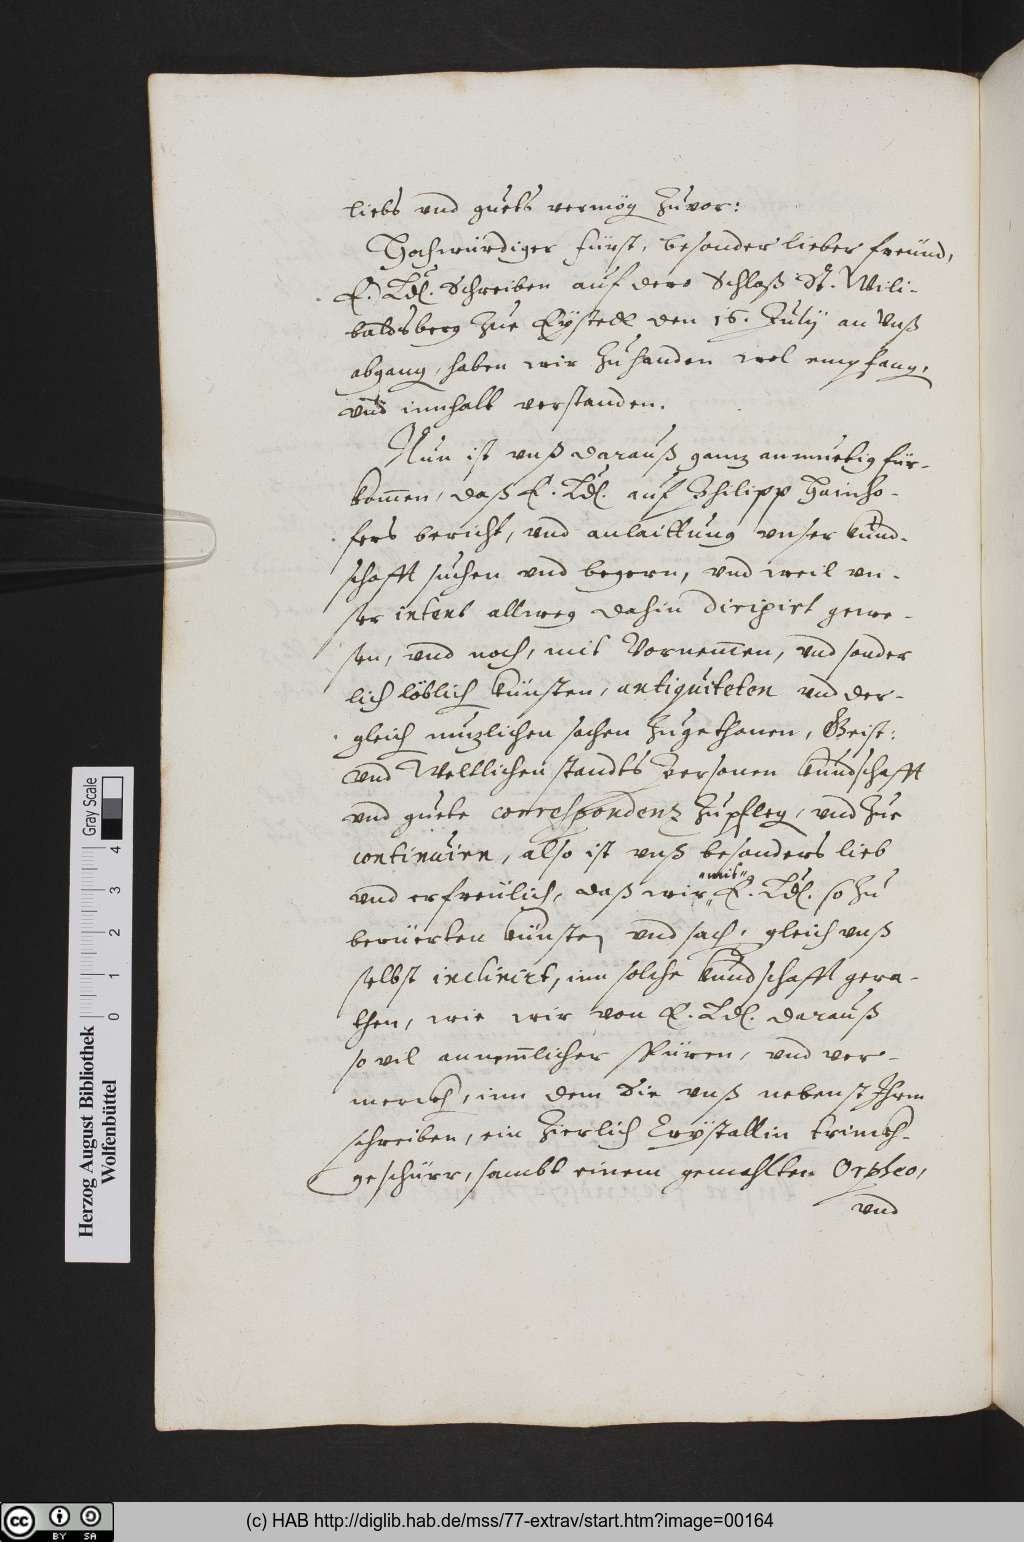 liebs vnd guets vermög zuuor:
Hochwürdiger fürst, besonder lieber freünd,
E. Ldl. Schreiben auf dero Schloß St. Wili-
baldsberg zue Eystett den 16. July an vnß
abgang, haben wir zuhanden wol empfang,
vnd innhalt verstanden.
Nun ist vnß darauß ganz anmuetig für-
kom̄en, daß E. Ldl. auf Philipp Hainho-
fers bericht, vnd anlaittung vnser kund-
schafft suchen vnd begern, vnd weil vn-
ser intent allweg dahin dirigirt gewe-
sen, vnd noch, mit Vornem̄en, vnd sonder
lich löblich künsten, antiquiteten vnd der-
gleich nuzlichen sachen zugethanen, Geist:
vnd Weltlichen standts Personen kundschafft
vnd guete correspondenz zupfleg, vnd zue
continuirn, also ist vnß besonders lieb
vnd erfreülich, daß wir "mit" E. Ldl. so zu
berüerten künsten vnd sach, gleich vnß
selbst inclinirt, inn solche kundschafft gera-
then, wie wir von E. Ldl. darauß
so vil annem̄licher spüren, vnd ver-
merckh, inn dem Sie vnß nebenst Ihrm
schreiben, ein zierlich Crystallin trinckh-
geschürr, sambt einem gemahlten Orpheo,
vnd
Herzog August Bibliothek
Wolfenbüttel
0 1 2 3 4
Gray Scale
cc BY SA
(c) HAB http://diglib.hab.de/mss/77-extrav/start.htm?image=00164